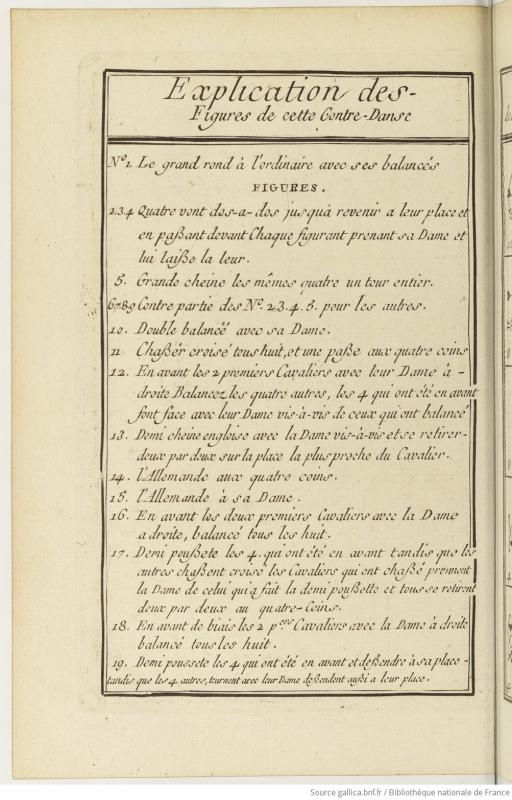 Explication des-
Figures de cette Contre-Danse
N.º 1 Le grand rond à l'ordinaire avec ses balancés
FIGURES.
2.3.4 Quatre vont dos-a-dos jusqu'à revenir a leur place et
en paßant devant Chaque figurant prenant sa Dame et
lui laiße la leur.
5. Grande cheine les mêmes quatre un tour entier.
6.7.8.9 Contre partie des Nº. 2.3.4.5. pour les autres.
10. Double balancé avec sa Dame.
11 Chaßér croisé tous huit, et une paße aux quatre coins
12. En avant les 2 premiers Cavaliers avec leur Dame à -
droite Balancez les quatre autres, les 4 qui ont été en avant
font face avec leur Dame vis-à-vis de ceux qui ont balancé
13. Demi cheine engloise avec la Dame vis-à-vis et se retirer-
deux par deux sur la place la plus proche du Cavalier.
14. l'Allemande aux quatre coins.
15. l'Allemande à sa Dame.
16. En avant les deux premiers Cavaliers avec la Dame
a droite, balancé tous les huit.
17. Demi poußete les 4. qui ont été en avant tandis que les
autres chaßent croisé les Cavaliers qui ont chaßé prennent
la Dame de celui qui a fait la demi poußette et tous se retirent
deux par deux au quatre-Coins.
18. En avant de biais les 2 p.ers Cavaliers avec la Dame à droite
balancé tous les huit.
19. Demi poussete les 4 qui ont été en avant et deßendre à sa place-
tandis que les 4 autres, tournent avec leur Dame deßendent außi a leur place.
Source gallica.bnf.fr / Bibliothèque nationale de France